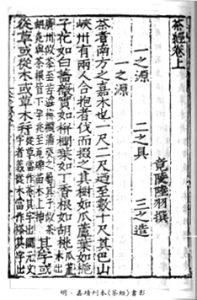 茶經卷上
竟陵陸羽撰
一之源　二之具　三之造
一之源
茶者南方之嘉木也一尺二尺迺至數十尺其巴山
峽州有兩人合抱者伐而掇之其樹如瓜蘆葉如梔
子花如白薔薇實如栟櫚葉如丁香根如胡桃
其字或
從草或從木或草木并
明·嘉靖刊本《茶經》書影